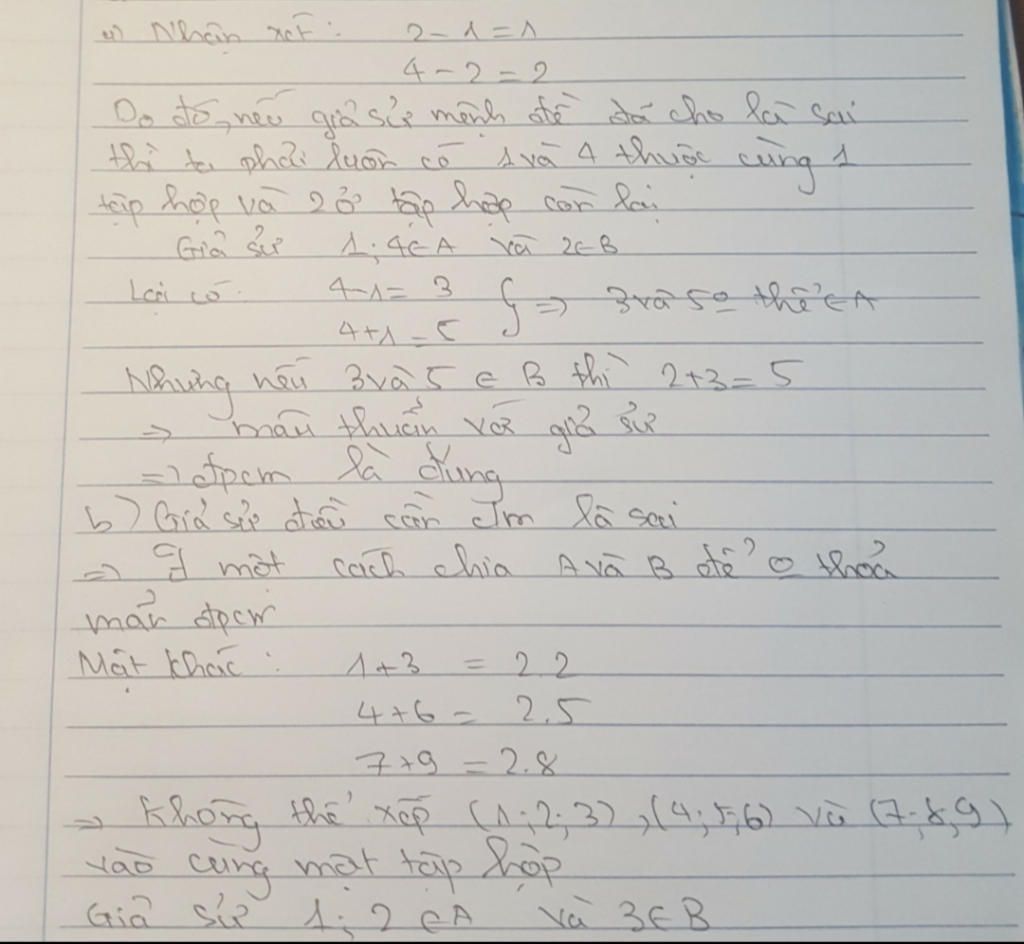 a) Nhận xét: 2 - 1 = 1
4 - 2 = 2
Do đó, nếu giả sử mệnh đề đã cho là sai
thì ta phải luôn có 1 và 4 thuộc cùng 1
tập hợp và 2 ở tập hợp còn lại
Giả sử 1; 4 ∈ A và 2 ∈ B
Lại có: 4 - 1 = 3
4 + 1 = 5 } => 3 và 5 0 thể ∈ A
Nhưng nếu 3 và 5 ∈ B thì 2 + 3 = 5
=> mâu thuẫn với giả sử
=> đpcm là đúng
b) Giả sử điều cần cm là sai
=> ∃ một cách chia A và B để 0 thoả
mãn đpcm
Mặt khác: 1 + 3 = 2.2
4 + 6 = 2.5
7 + 9 = 2.8
=> Không thể xếp (1; 2; 3), (4; 5; 6) và (7; 8; 9)
vào cùng một tập hợp
Giả sử 1; 2 ∈ A và 3 ∈ B